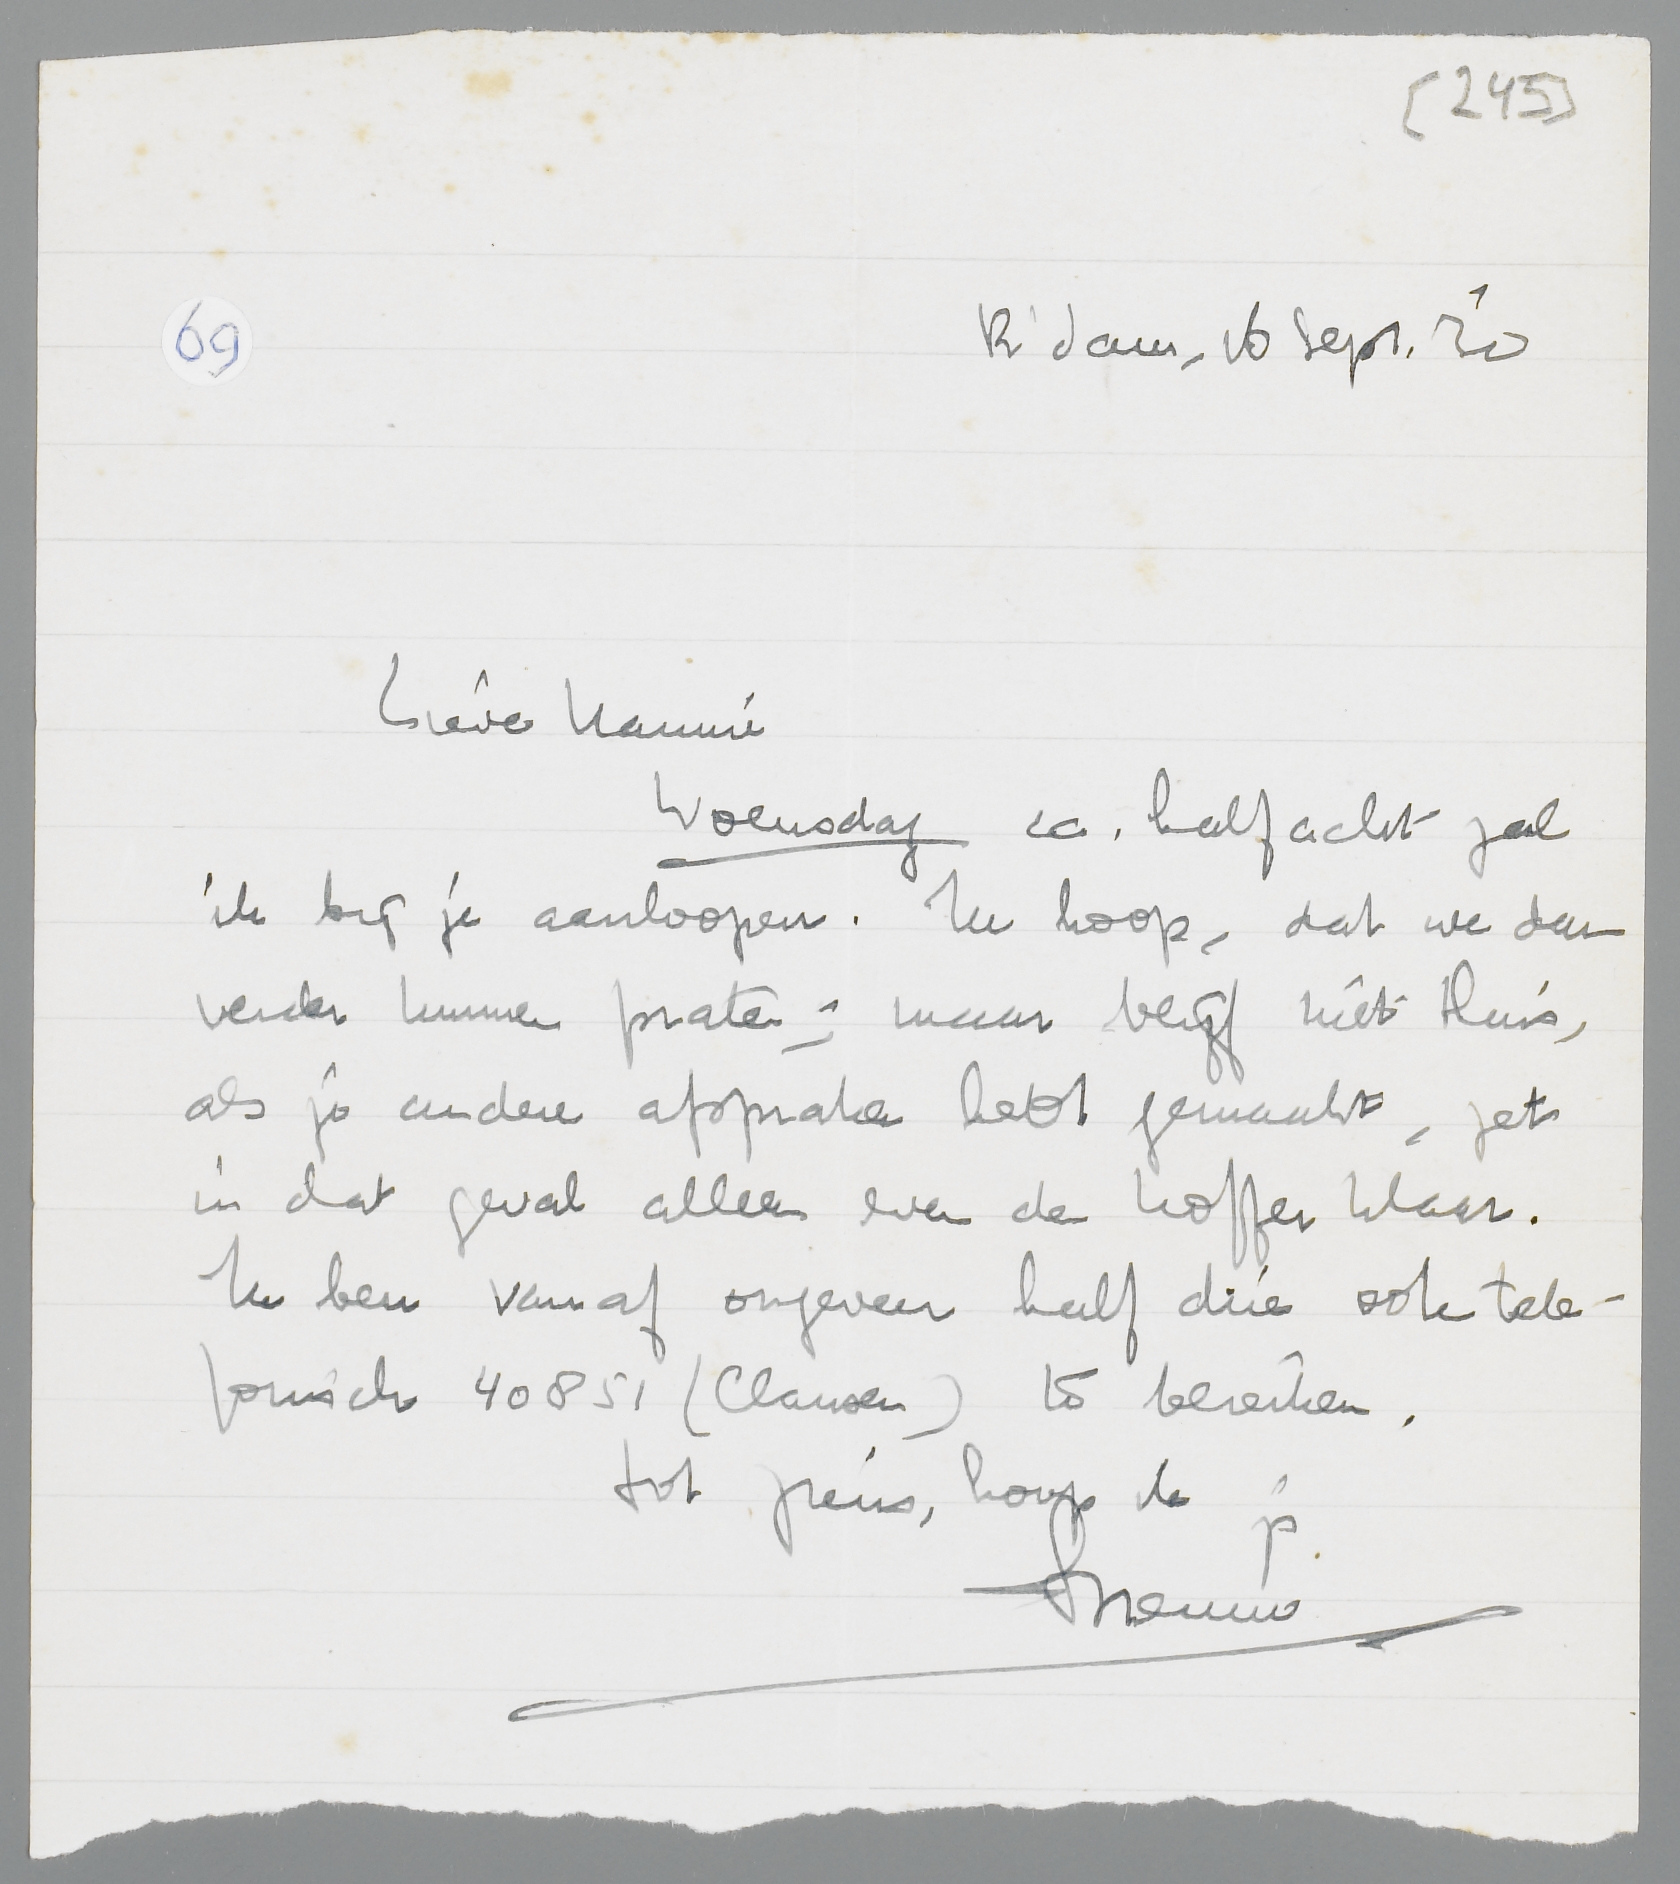 [245]
69
R'dam, 16 Sept. '30
Lieve Nannie
Woensdag ca. half acht zal
ik bij je aanloopen. Ik hoop, dat we dan
verder kunnen praten; maar blijf niet thuis,
als je andere afspraken hebt gemaakt, zet
in dat geval alleen even de koffer klaar.
Ik ben vanaf ongeveer half drie ook tele-
fonisch 40851 (Clausen) te bereiken.
tot ziens, hoop ik
je
Menno